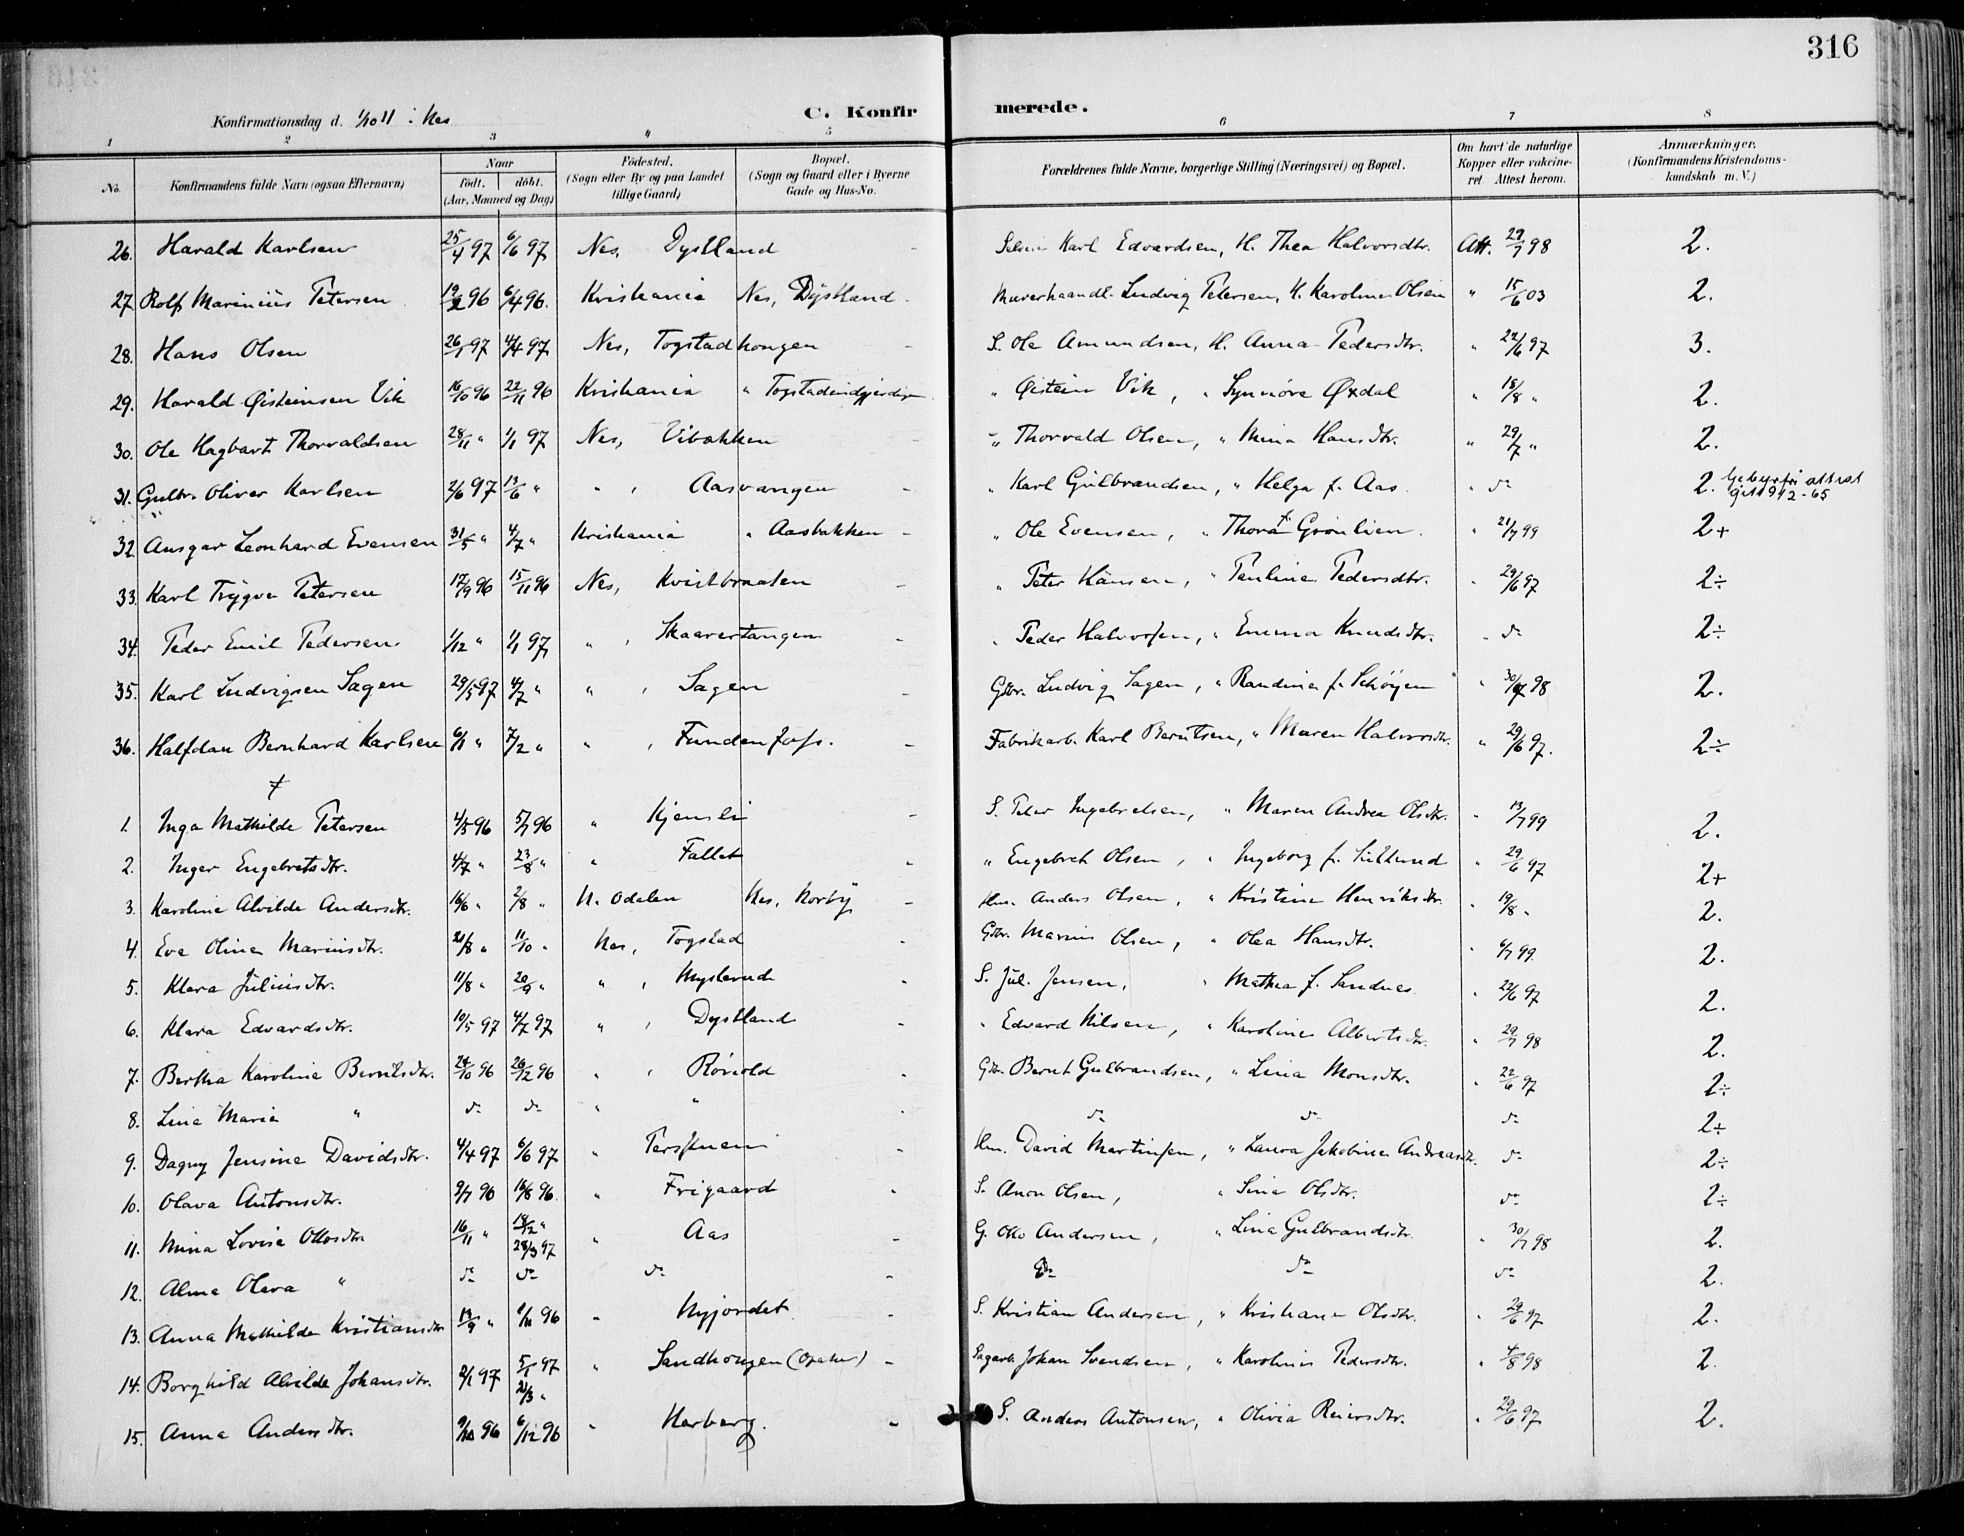 316
Konfirmationsdag d. 1/10 11 i Nes
C. Konfirmerede.
1 2 3 4 5 6 7 8
No. Konfirmandens fulde Navn (ogsaa Efternavn) Naar født. døbt. (Aar, Maaned og Dag) Fødested. (Sogn eller By og paa Landet tillige Gaard) Bopæl. (Sogn og Gaard eller i Byerne Gade og Hus-No. Forældrenes fulde Navne, borgerlige Stilling (Næringsvei) og Bopæl. Om havt de naturlige Kopper eller vakcineret. Attest herom. Anmærkninger. (Konfirmandens Kristendomskundskab m. V.)
26. Harald Karlsen 25/4 97 6/6 97 Nes, Dystland - Karl Edvardsen, H. Thea Halvorsdtr. Att. 29/7 98 2.
27. Rolf Marinius Petersen 19/2 96 6/4 96. Kristiania Nes, Dystland - Murerhaandl. Ludvig Petersen, H. Karoline Olsen " 15/6 03 2.
28. Hans Olsen 26/1 97 4/4 97 Nes, Togstadhougen - S. Ole Amundsen, H. Anna Pedersdtr. " 22/6 97 3.
29. Harald Øisteinsen Vik 16/10 96 22/11 96 Kristiania " " Øistein Vik, " Synnöve Øxdal " 18/8 " 2.
30. Ole Hagbart Thorvaldsen 28/11 " 1/1 97 Nes, Vibakken " Thorvald Olsen, " Mina Hansdtr. " 29/7 " 2.
31. Gulbr. Oliver Karlsen 2/6 97 13/6 " " , Aasvangen - " Karl Gulbrandsen, " Helga f. Aas " do 2. Gebyrfri attest git 1912-65
32. Ansgar Leonhard Evensen 31/5 " 4/7 " Kristiania " Aasbakken - " Ole Evensen, " Thora f. Grönlien " 21/7 99 2+
33. Karl Trygve Petersen 17/9 96 15/11 96 Nes, Kvistbraaten - " Peter Hansen, " Pauline Pedersdtr. " 29/6 97 2÷
34. Peder Emil Pedersen 1/12 " 1/1 97 " , Skaarertangen - " Peder Halvorsen, " Emma Knudsdtr. " do 2÷
35. Karl Ludvigsen Sagen 29/5 97 4/7 " " , Sagen Gbr. Ludvig Sagen, " Randine f. Schøyen " 30/7 98 2.
36. Halfdan Bernhard Karlsen 6/1 " 7/2 " " , Fundenfoss. - Fabrikarb. Karl Berntsen, " Maren Halvorsdtr. " 29/6 97. 2÷
1. Inga Mathilde Petersen 4/5 96 5/7 96 " Kjemsli - S. Peter Ingebretsen, " Maren Andrea Olsdtr. " 13/7 99 2.
2. Inger Engebretsdtr. 4/7 " 23/8 " " Fallet - " Engebret Olsen, " Ingeborg f. " 29/6 97 2+
3. Karoline Alvilde Andersdtr. 16/6 " 2/8 " N. Odalen Nes, Norby - Hm. Anders Olsen, " Kristine Henriksdtr. " 19/8 " 2.
4. Eva Oline Mariusdtr. 21/8 " 11/10 " Nes, Togstad - Gbr. Marius Olsen, " Olea Hansdtr. " 6/7 99. 2.
5. Klara Juliusdtr. 11/8 " 20/9 " " , Myslerud - S. Jul. Jensen, " Mathea f. Sandnes " 22/6 97 2.
6. Klara Edvardsdtr. 10/5 97 4/7 97 " , Dystland - " Edvard Nilsen, " Karoline Albertsdtr. " 29/7 98 2.
7. Bertha Karoline Berntsdtr. 24/10 96 26/12 96 " , Rövold - Gbr. Bernt Gulbrandsen, " Lina Monsdtr. " 22/6 97 2÷
8. Lina Maria " do do " " - do do do 2÷
9. Dagny Jensine Davidsdtr. 4/4 97 6/6 97 " - Hm. David Martinsen, " Laura Jakobine Andreasdtr. do 2÷
10. Olava Antonsdtr. 9/7 96 16/8 96. " Frigaard - S. Anon Olsen, " Sina Olsdtr. do 2÷
11. Mina Lovise Ottosdtr. 16/11 " 19/12 " 28/3 97 " Aas - G. Otto Andersen, " Lina Gulbrandsdtr. " 30/7 98 2.
12. Alma Olava " do do do - do do do 2.
13. Anna Mathilde Kristiansdtr 13/9 " 1/11 96 " Nyjordet S. Kristian Andersen, " Kristiane Olsdtr. " 29/6 97 2.
14. Borghild Alvilde Johansdtr. 2/1 97 5/1 97 21/3 " " Sandhougen (Opaker) - Sagarb. Johan Svendsen, " Karoline Pedersdtr. " 4/8 98 2.
15. Anna Andersdtr. 9/10 96 6/12 96 " Herberg. " S. Anders Antonsen, " Olivia Reiersdtr. " 29/6 97 2.